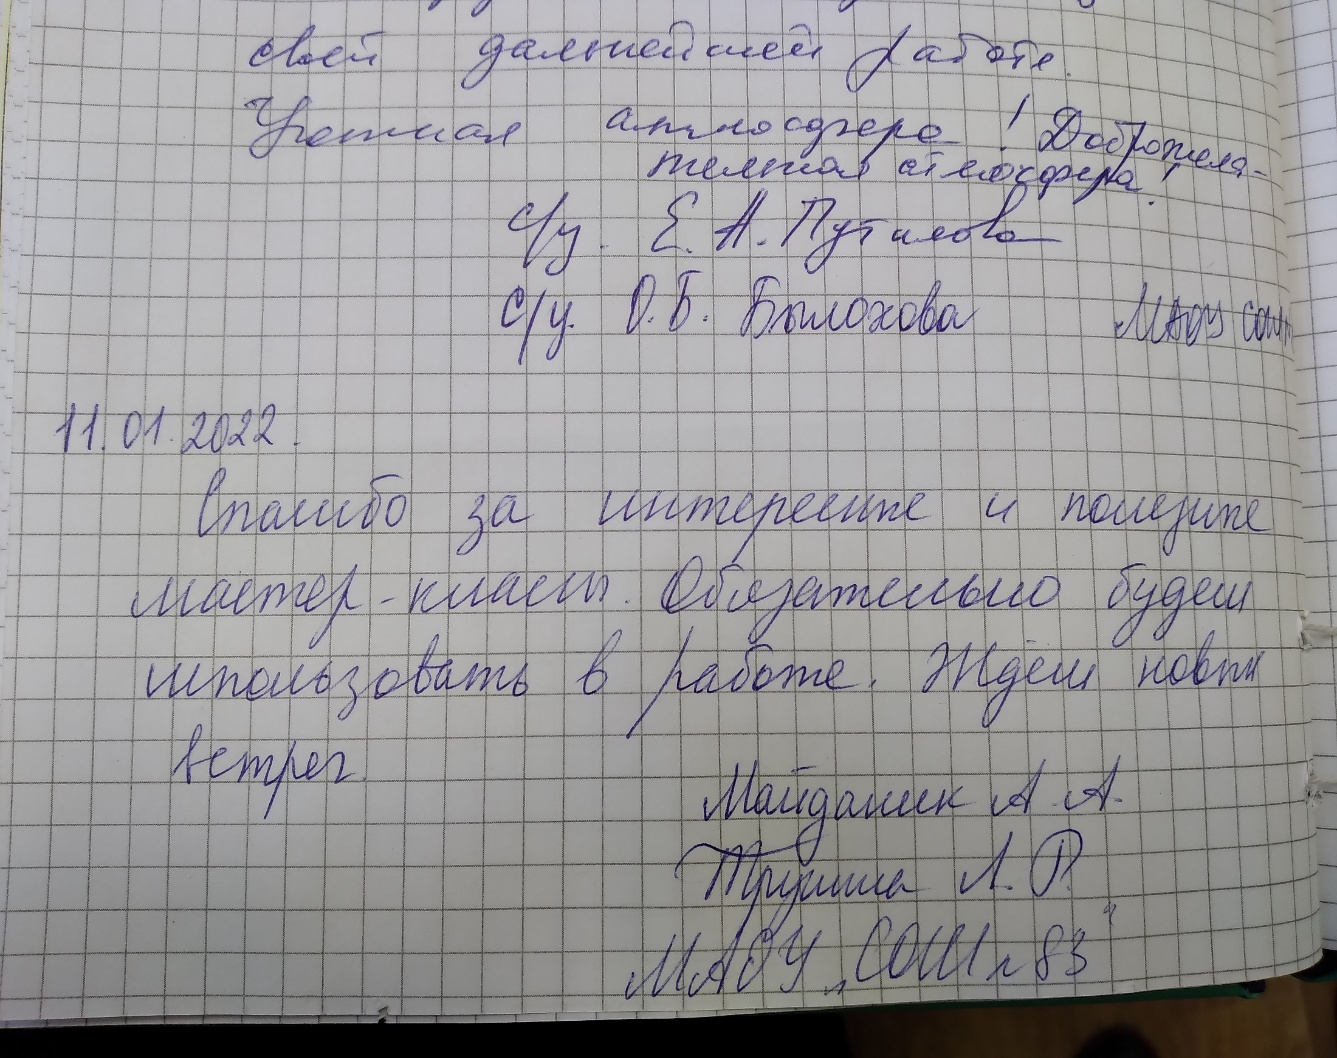 своей дальнейшей работе.
Уютная атмосфера! Доброжела-
тельная атмосфера!
с/у. Е. А. Путилова
с/у. О.Б. Былохова МАОУ СОШ
11.01.2022.
Спасибо за интересные и полезные
мастер-классы. Обязательно будем
использовать в работе. Ждём новых
встреч.
Майданик А. А.
Л. Р.
МАОУ „СОШ № 83"